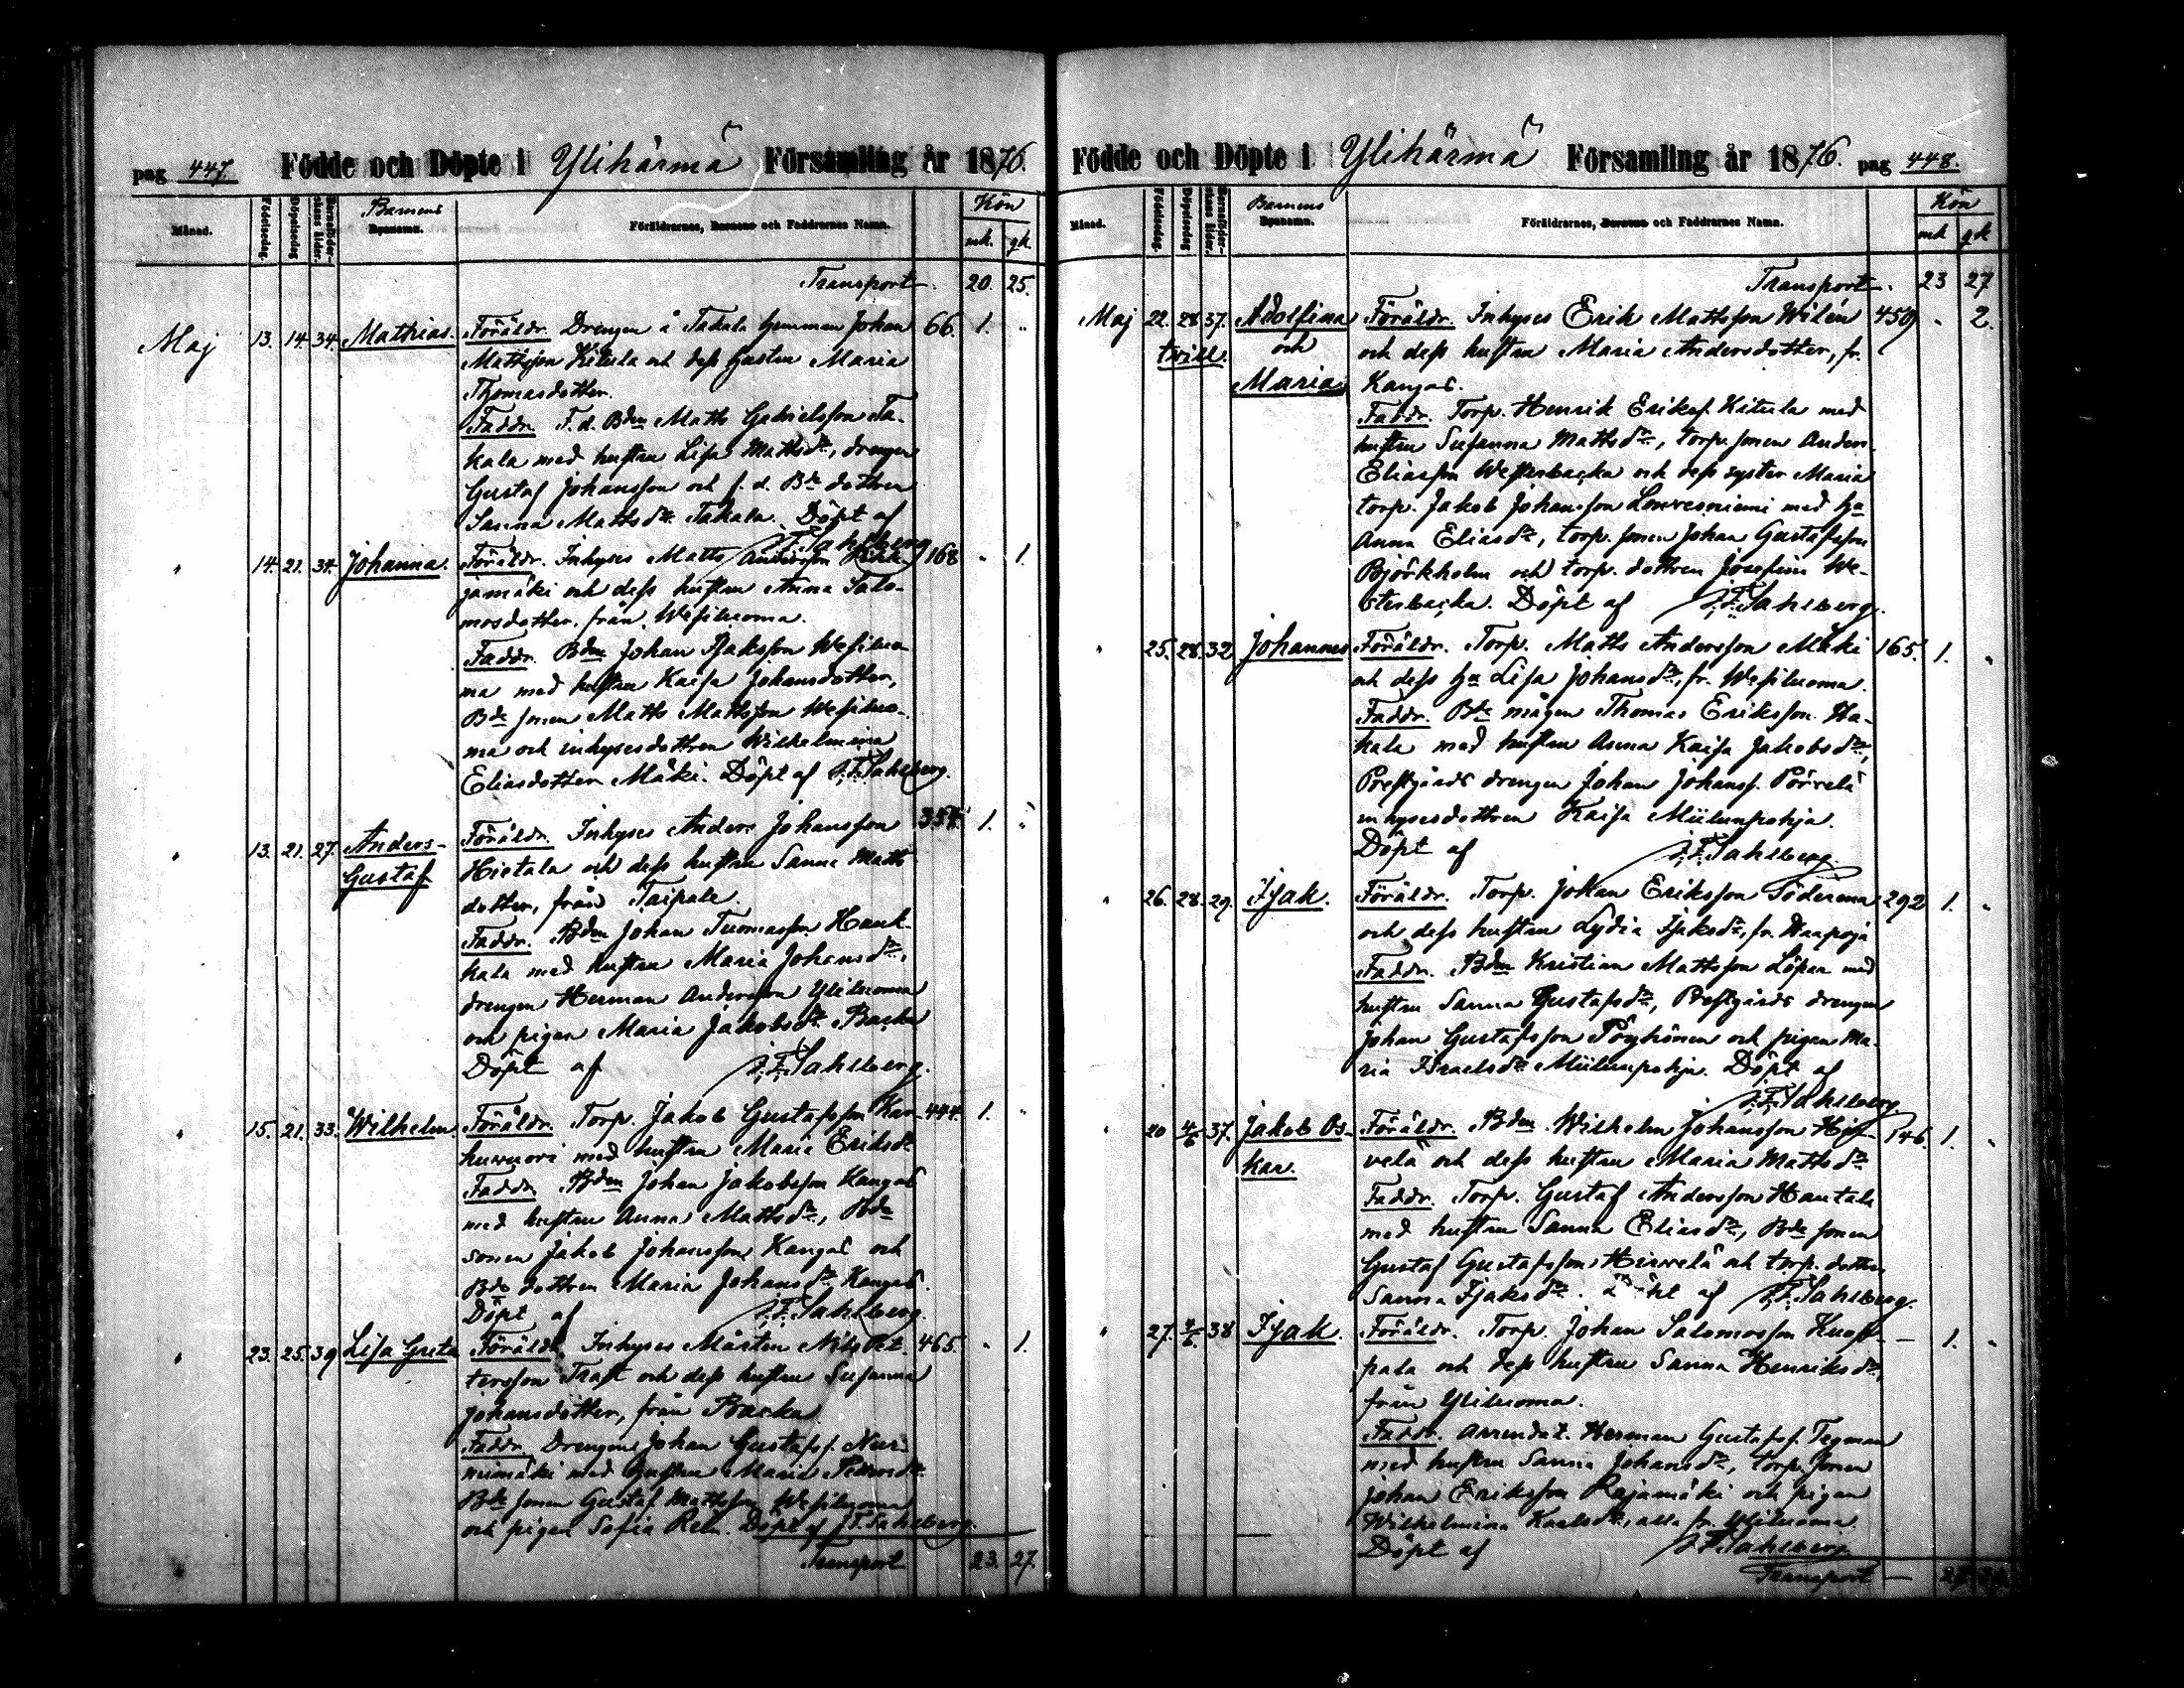 pag 447. Födde och Döpte i Ylihärmä Församling år 1876.
Månad. Födelsedag. Döpelsedag. Barnaföderskans ålder. Barnens Dpnamn. Föräldrarnes, Barnens och Faddrarnes Namn. Kön
mk. qk.
Transport. 20. 25.
Maj 13. 14. 34. Mathias. Föräldr. Drengen å Takala hemman Johan 66. 1. "
Mattsson Kitula och dess hustru Maria
Thomasdotter.
Faddr. F. d. Bdn Matts Gabrielsson Ta-
kala med hustru Lisa Mattsdr, drengen
Gustaf Johansson och f. d. Bde dottren
Sanna Mattsdr Takala. Döpt af
J. F. Sahlberg
" 14. 21. 34. Johanna. Föräldr. Inhyses Matts Andersson 168 " 1.
jamäki och dess hustru Anna Salo-
mosdotter, från Wesiluoma.
Faddr. Bdn Johan Isaksson Wesiluo-
ma med hustru Kaisa Johansdotter,
Bde sonen Matts Mattsson Wesiluo-
ma och inhysesdottren Wilhelmina
Eliasdotter Mäki. Döpt af J. F. Sahlberg.
" 13. 21. 27. Anders- Föräldr. Inhyses Anders Johansson 357. 1. "
Gustaf Hietala och dess hustru Sanna Matts-
dotter, från Taipale.
Faddr. Bdn Johan Tuomasson Hauk-
kala med hustru Maria Johansdr,
drengen Herman Andersson Yliluoma
och pigan Maria Jakobsdr Backa
Döpt af J. F. Sahlberg.
" 15. 21. 33. Wilhelm. Föräldr. Torp. Jakob Gustafsson Kar- 444. 1. "
huvuori med hustru Maria Eriksdr
Faddr. Bdn Johan Jakobsson Kangas
med hustru Anna Mattsdr, Bde
sonen Jakob Johansson Kangas och
Bde dottren Maria Johansdr Kangas.
Döpt af J. F. Sahlberg
" 23. 25. 39 Lisa Greta Föräldr. Inhyses Mårten Nils Pet- 465. " 1.
tersson Trast och dess hustru Susanna
Johansdotter, från Backa
Faddr. Drengen Johan Gustafss. Nur-
mimäki med hustru Maria
Bde sonen Gustaf Mattsson Wesiluoma
och pigan Sofia Reln. Döpt af J. F. Sahlberg.
Transport 23. 27.
Födde och Döpte i Ylihärmä Församling år 1876. pag 448.
Månad. Födelsedag. Döpelsedag. Barnaföderskans ålder. Barnens Dpnamn. Föräldrarnes, Barnens och Faddrarnes Namn. Kön
mk qk
Transport. 23 27
Maj 22. 28. 37. Adolfina Föräldr. Inhyses Erik Mattsson Wilén 459 " 2.
twill. och och dess hustru Maria Andersdotter, fr.
Maria Kangas.
Faddr. Torp. Henrik Eriks. Kitula med
hustru Susanna Mattsdr, torp. sonen Anders
Eliasson Westerbacka och dess syster Maria
torp. Jakob Johansson Louvesniemi med ha
Anna Eliasdr, torp. sonen Johan Gustafsson
Björkholm och torp. dottren Josefina We-
sterbacka. Döpt af J. F. Sahlberg.
" 25. 28. 32 Johannes Föräldr. Torp. Matts Andersson Mäki 165. 1. "
och dess ha Lisa Johansdr, fr. Wesiluoma.
Faddr. Bde mågen Thomas Eriksson Ha-
kala med hustru Anna Kaisa Jakobsdr,
Prestgårds drengen Johan Johanss. Pörrelä
inhysesdottren Kaisa Miilunpohja.
Döpt af J. F. Sahlberg.
" 26. 28. 29. Isak. Föräldr. Torp. Johan Eriksson Söderena 292 1. "
och dess hustru Lydia Isaksdr, fr. Haapoja
Faddr. Bdn Kristian Mattsson Löpar med
hustru Sanna Gustafsdr, Prestgårds drengen
Johan Gustafsson Pöyhönen och pigan Ma-
ria Israelsdr Miilunpohja. Döpt af
J. F. Sahlberg
" 20 4/6 37. Jakob Os- Föräldr. Bdn Wilhelm Johansson Hir- 146. 1. "
kar. velä och dess hustru Maria Mattsdr
Faddr. Torp. Gustaf Andersson Hautala
med hustru Sanna Eliasdr, Bde sonen
Gustaf Gustafsson Hirvelä och torp. dottren
Sanna Isaksdr. Döpt af J. F. Sahlberg.
" 27. 4/6. 38 Isak. Föräldr. Torp. Johan Salomosson Kuop- — 1. "
pala och dess hustru Sanna Henriksdr,
från Yliluoma.
Faddr. Arrendat. Herman Gustafss. Tegman
med hustru Sanna Johansdr, torp. sonen
Johan Eriksson Rajamäki och pigan
Wilhelmina Karlsdr, alla fr. Yliluoma.
Döpt af J. F. Sahlberg
Transport —